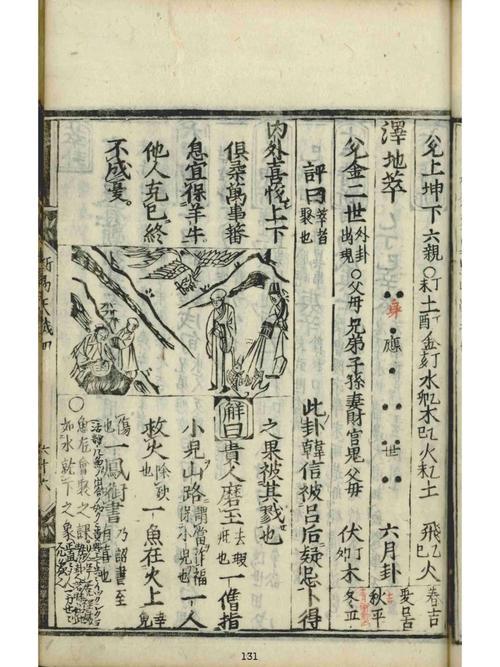 兌上坤下六親○未丁土酉丁金亥丁水卯乙木巳乙火未乙土 飛巳乙火 春吉
夏吉
澤地萃 身 應 世 六月卦 秋平
兌金二世外卦出現○父母兄弟子孫妻財官鬼父母 伏卯丁木 冬平
評曰萃者聚也 此卦韓信被呂后疑忌卜得
之果被其戮也
內外喜悅上下
俱柔萬事蕃
息宜保羊牛
他人克己終
不成憂。
解曰貴人磨玉去瑕疵也 一僧指
小兒山路謂當作福保小兒也 一人
救火除殃也 一魚在火上免
傷也 一鳳啣書乃詔書至有喜也
○魚在會聚之課
如水就下之象
六十六
131